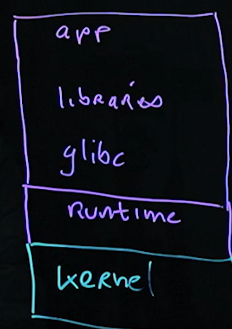 app
libraries
glibc
Runtime
kernel